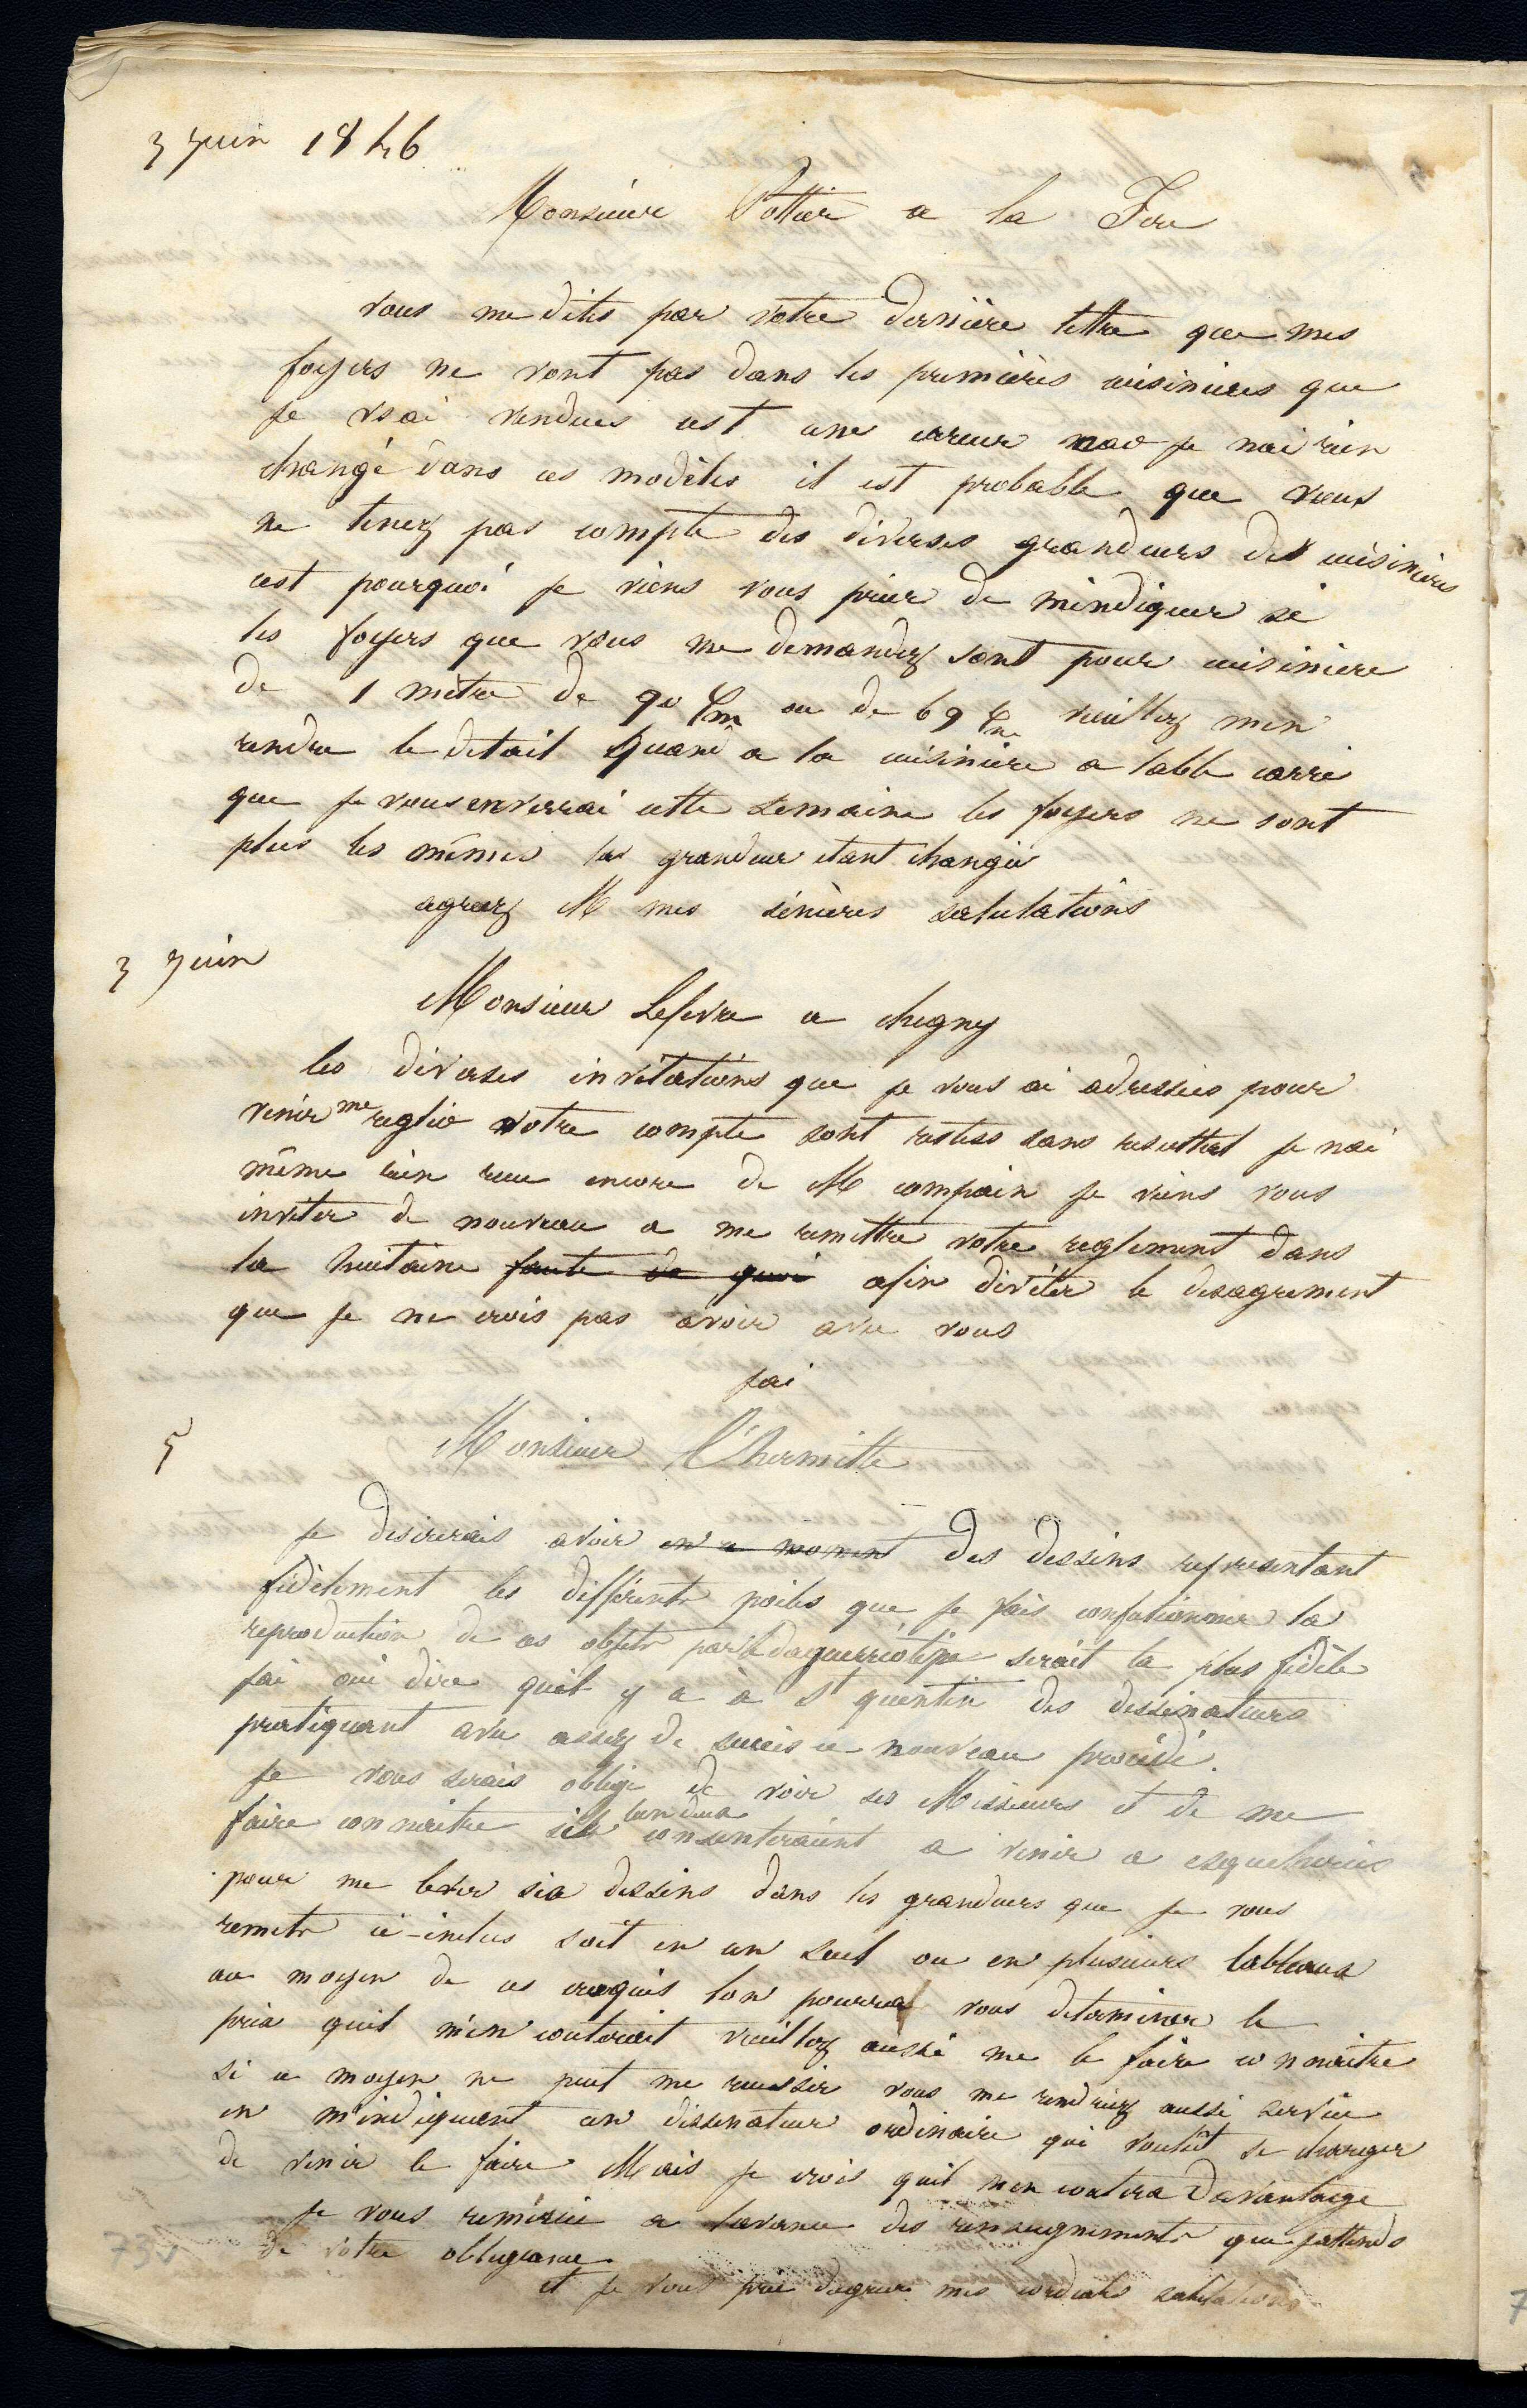 3 Juin 1846
Monsieur Pottier a la Fere
vous me dites par votre dernière lettre que mes
foyers ne vont pas dans les premières cuisinieres que
je vs ai vendues cest une erreur je nai rien
changé dans ces modèles il est probable que vous
ne tenez pas compte des diverses grandeurs des cuisinieres
cest pourquoi je viens vous prier de m'indiquer si
les foyers que vous me demandez sont pour cuisiniere
de 1 mètre de 90 c/m ou de 69 c/m veuillez men
rendre le detail Quand a la cuisinière a table carré
que je vous enverrai cette semaine les foyers ne sont
plus les mêmes la grandeur etant changée
agreez M mes sincères salutations
3 Juin
Monsieur Lefevre a chigny
les diverses invitations que je vous ai adressées pour
venir me regler votre compte sont restées sans resultat je nai
même rien recu encore de M compain je viens vous
inviter de nouveau a me remettre votre reglement dans
la huitaine faute de quoi afin d'eviter le desagrement
que je ne crois pas avoir avec vous
jai
5
Monsieur l'hermitte
je desirerais avoir en ce moment des dessins representant
fidèlement les differents poëles que je fais confectionner la
reproduction de ces objets par le daguerréotipe serait la plus fidèle
jai oui dire quil y a à St quentin des dessinateurs
pratiquant avec assez de succès ce nouveau procédé.
je vous serais obligé de voir ses Messieurs et de me
faire connaitre si lun deux consenteraient a venir a esquehéries
pour me lever six dessins dans les grandeurs que je vous
remets ci-inclus soit en un seul ou en plusieurs tableaux
au moyen de ces croquis lon pourra vous determiner le
prix quil m'en couterait veuillez aussi me le faire connaitre
si ce moyen ne peut me reussir vous me rendriez aussi service
en m'indiquant un dissenateur ordinaire qui voulût se charger
de venir le faire Mais je crois quil men coutera Davantage
je vous remercie a lavance des renseignements que jattends
de votre obligeance
et je vous prie dagreer mes cordiales salutations
73v
7